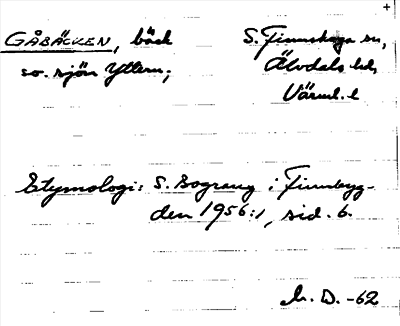 GÅBÄCKEN, bäck
so. sjön Yttern;
S. Finnskoga sn,
Älvdals hd,
Värml. l
Etymologi: S. Bograng i Finnbyg-
den 1956:1, sid. 6.
D. -62